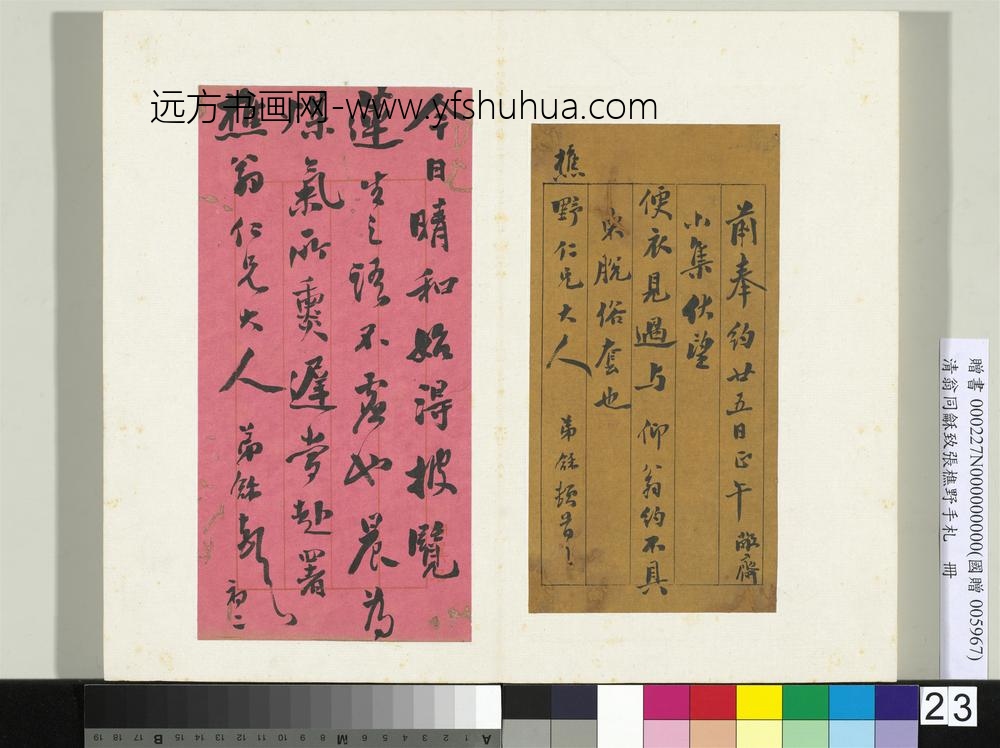 远方书画网-www.yfshuhua.com
前奉約廿五日正午臨齋
小集伏望
便衣見過与仰翁約不具
束脫俗套也
樵野仁兄大人
弟龢頓首
今日晴和始得披覽
蓮生之語不虛也晨為
煤氣所熏遲當赴署
樵翁仁兄大人
弟龢頓首
初二
贈書 000227N000000000(國贈 005967)
清翁同龢致張樵野手札 冊
23
A 1 2 3 4 5 6 M 8 9 10 11 12 13 14 15 B 17 18 19